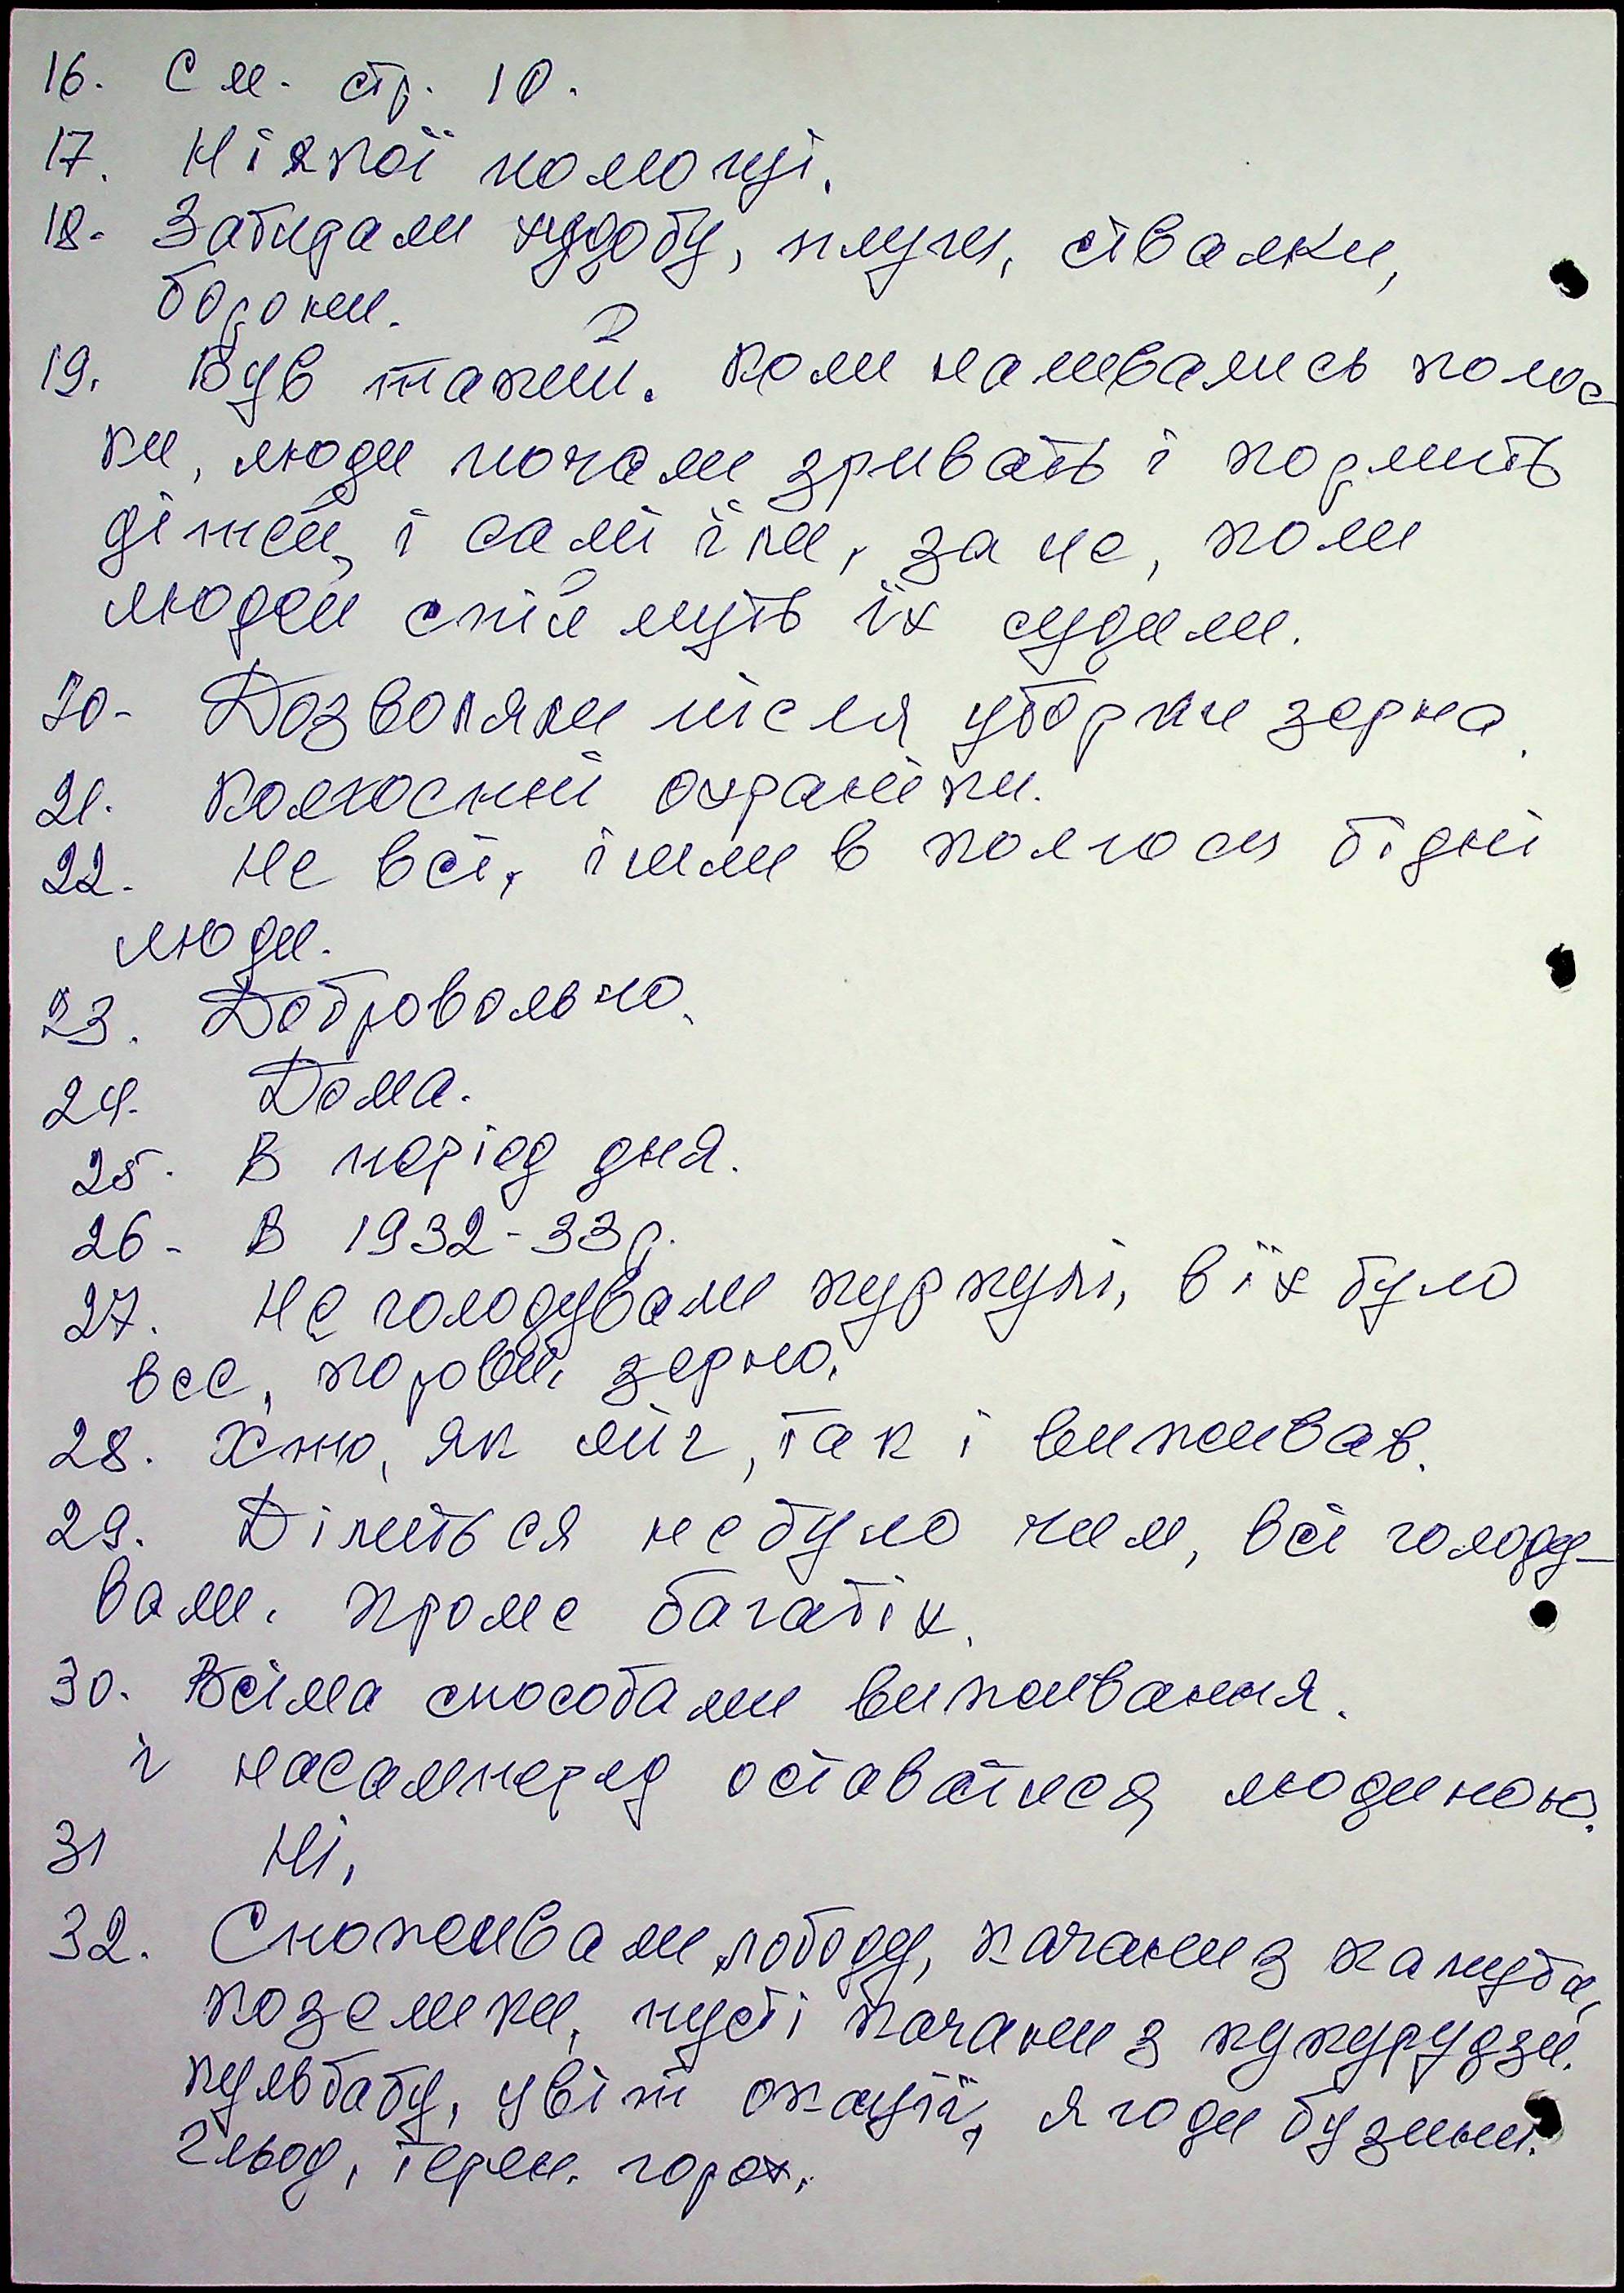 16. См. стр. 10.
17. Ніякої помощі.
18. Забирали худобу, плуги, сівалки,
борони.
19. Був такий. Коли наливались колос-
ки, люди почали зривать і кормить
дітей, і самі їли, за це, коли
людей спіймуть їх судили.
20. Дозволяли після уборки зерна.
21. Колхосний охраніки.
22. Не всі, ішли в колгосп бідні
люди.
23. Добровольно.
24. Дома.
25. В період дня.
26. В 1932-33 р.
27. Не голодували куркулі, в їх було
все, корови, зерно.
28. Хто, як міг, так і виживав.
29. Ділиться не було чим, всі голоду-
вали. кроме багатіх.
30. Всіма способами виживання.
і насамперед оставатися людиною.
31 Ні.
32. Споживали лободу, качани з капуста,
козелики, пусті качани з кукурудзи.
кульбабу, цвіт окації, ягоди бузини.
гльод, терен. горох.